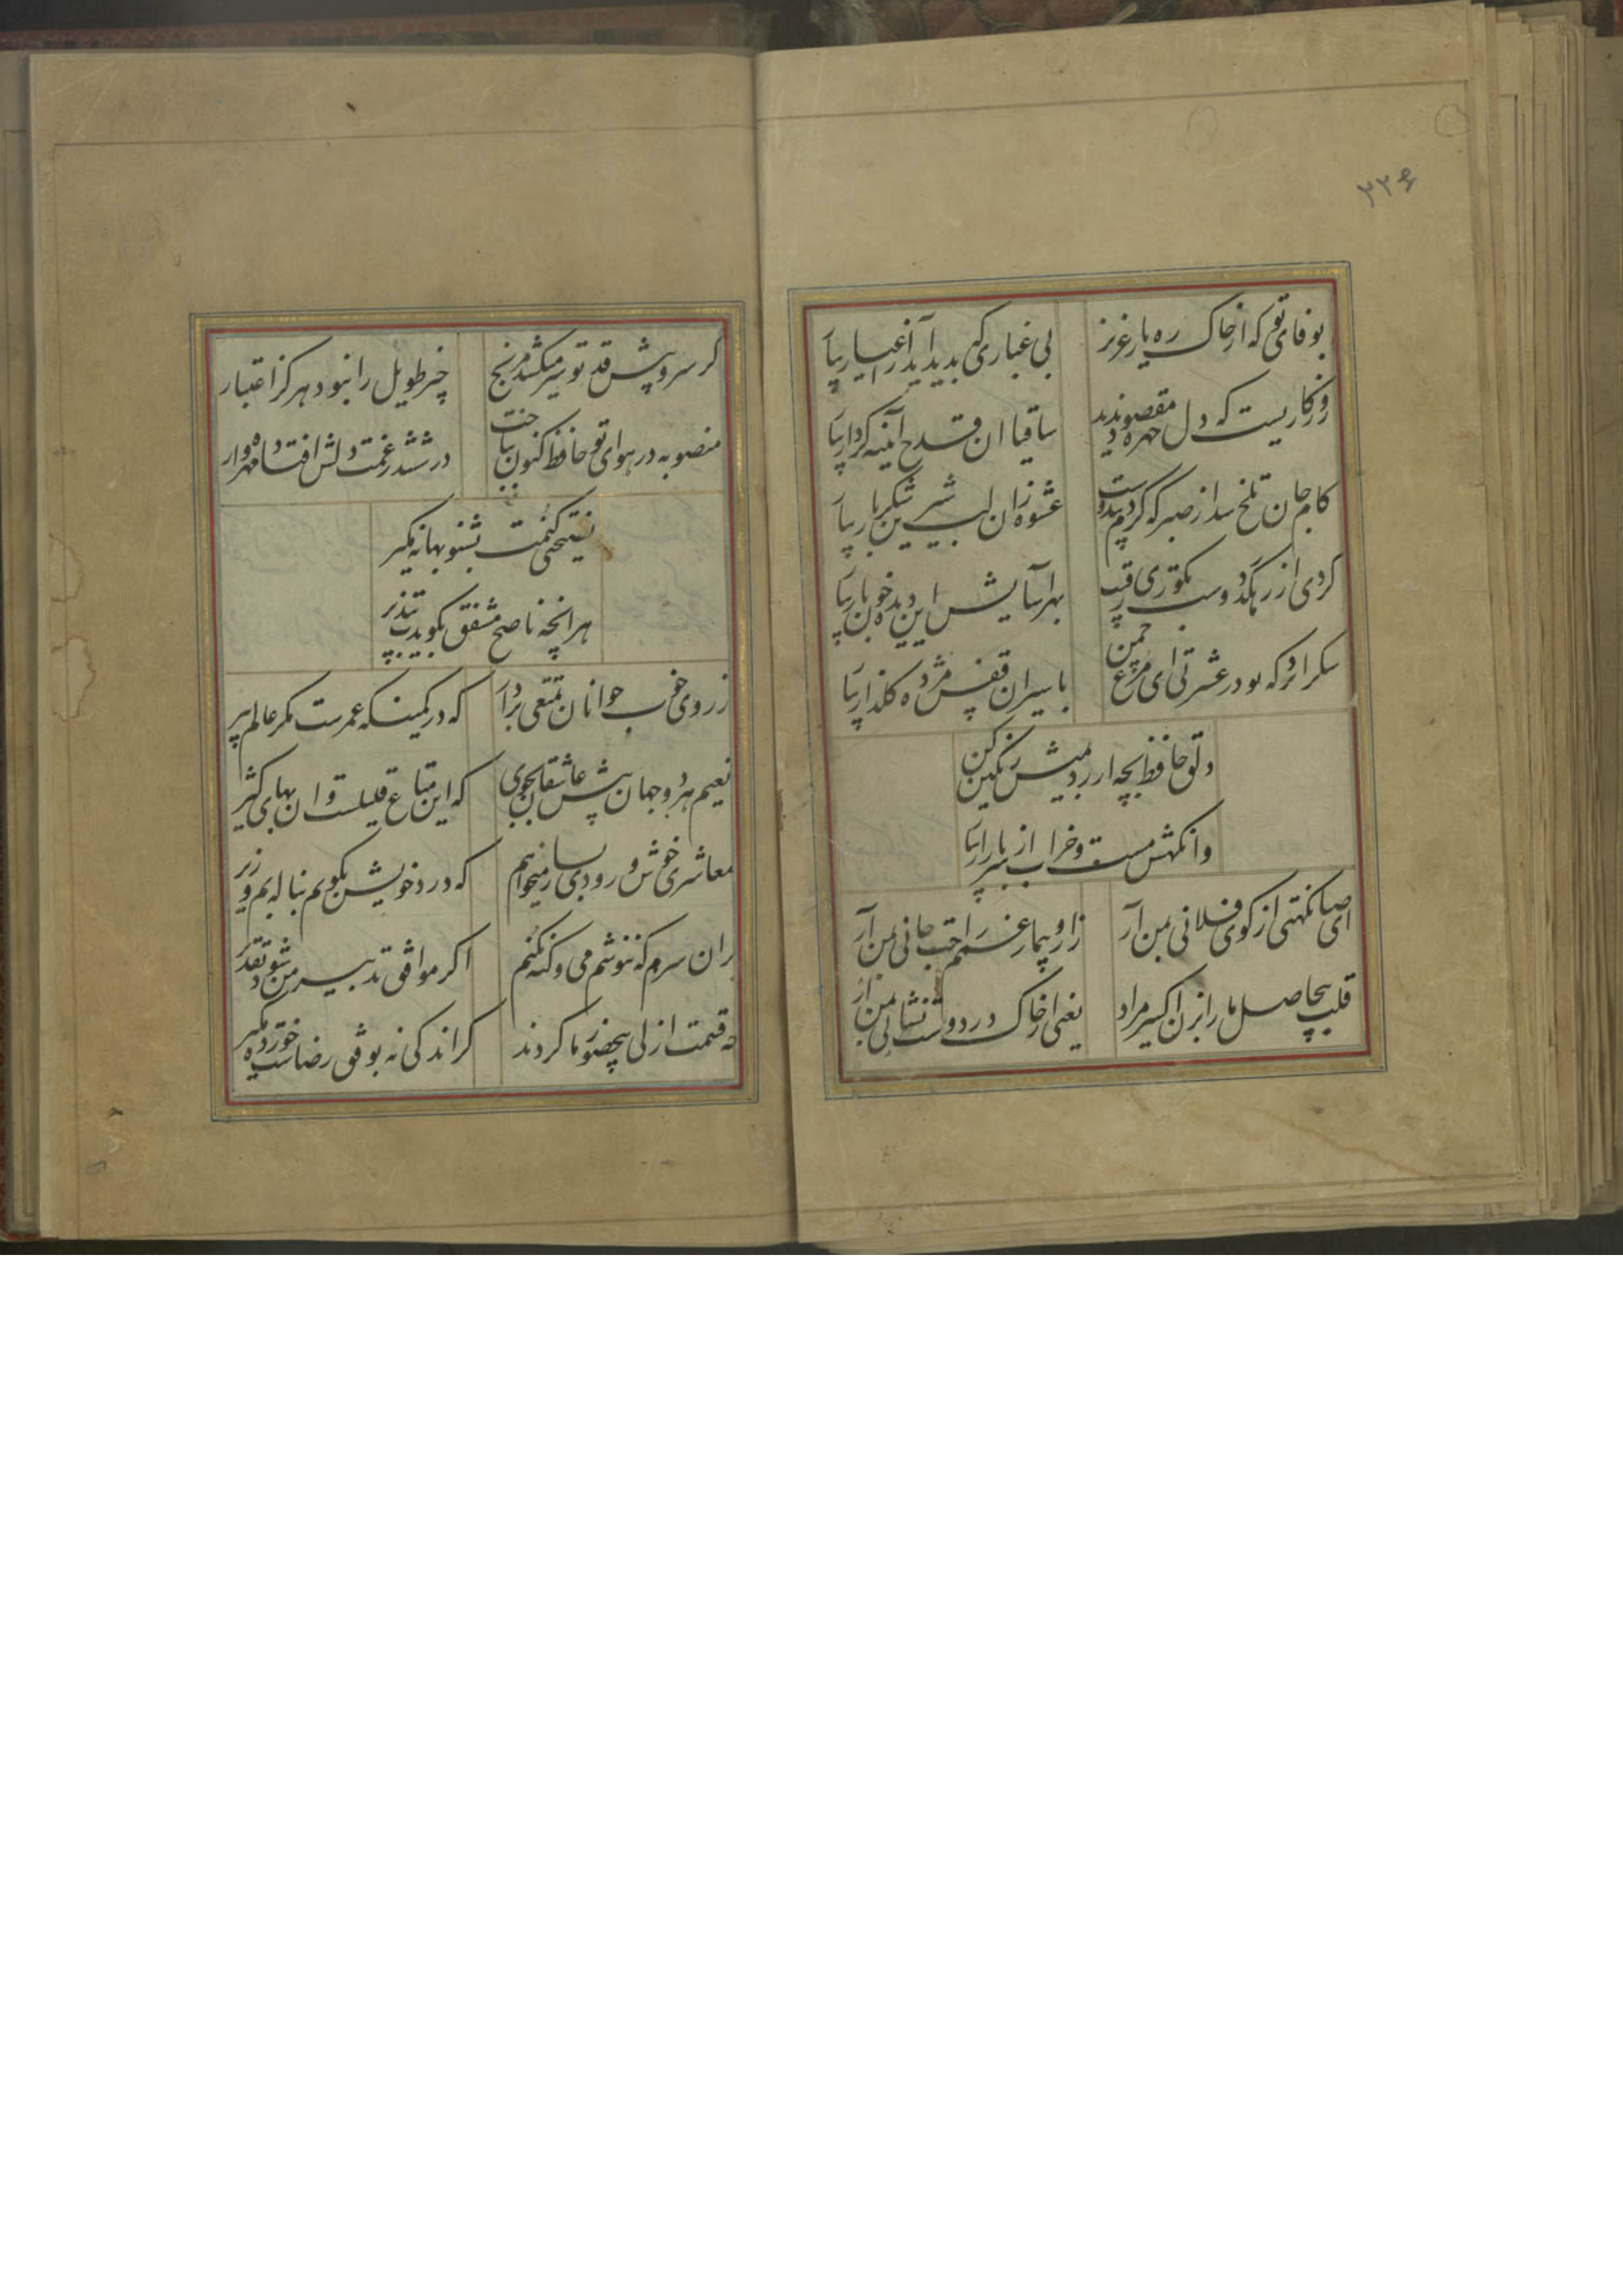 ۲۲۶
بوفای تو که از خاک ره یار عزیز
بی غباری که بدید آید از اغیار بیار
روزکاریست که دل چهره مقصود ندید
ساقیا ان قدح آینه کردار بیار
کام جان تلخ شد از صبر که کردم بیدوست
عشوه زان لب شیرین شکربار بیار
کردی از رهکذر دوست بکوری رقیب
بهر آسایش این دیده خونبار بیار
شکر انرا که تو در عشرتی ای مرغ چمن
باسیران قفس مژده کلزار بیار
دلق حافظ بچه ارزد بمیش رنکین کن
وانکهش مست و خراب از سر بازار بیار
ای صبا نکهتی از کوی فلانی بمن آر
زار و بیمار غمم راحت جانی بمن آر
قلب بیحاصل ما را بزن اکسیر مراد
یعنی از خاک در دوست نشانی بمن آر
کر سرو پیش قد تو سر میکشد مرنج
چیز طویل را نبود هرکز اعتبار
منصوبه در هوای تو حافظ کنون بباخت
در ششدر غمت دلش افتاده مهره وار
نصیحتی کنمت بشنو بهانه مکیر
هر انچه ناصح مشفق بکویدت بپذیر
ز روی خوب جوانان تمتعی بردار
که در کمینکه عمرست مکر عالم پیر
نعیم هر دو جهان پیش عاشقان بجوی
که این متاع قلیلست و ان بهای کثیر
معاشری خوش و رودی بساز میخواهم
که درد خویش بکویم بناله بم و زیر
بران سرم که ننوشم می و کنه نکنم
اکر موافق تدبیر من شود تقدیر
چه قسمت ازلی بیحضور ما کردند
کر اندکی نه بوفق رضاست خورده مکیر